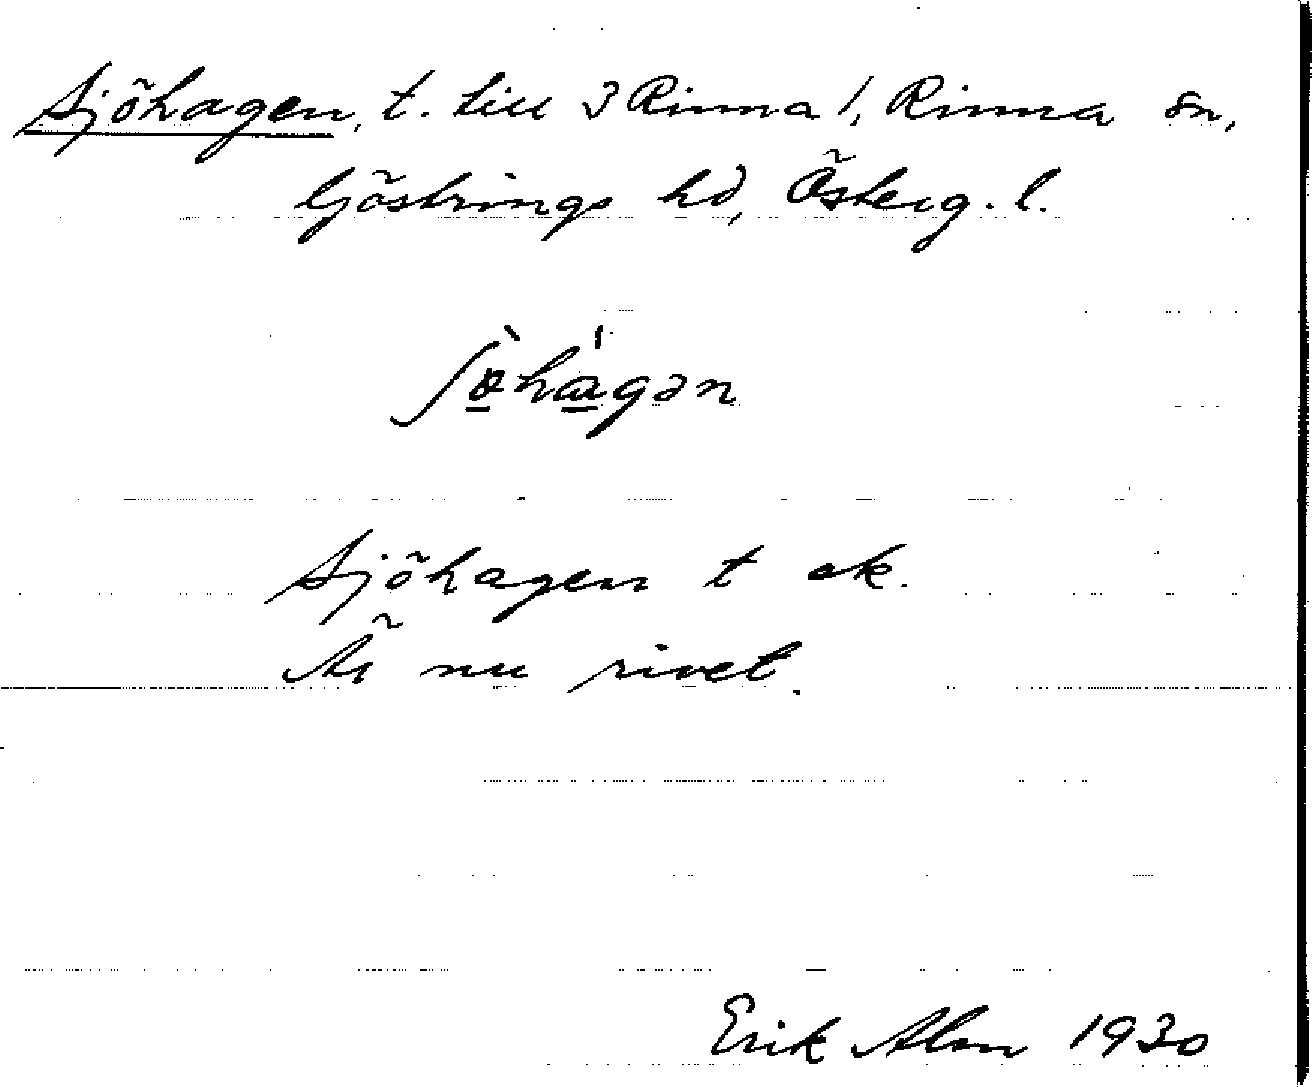 Sjöhagen, t. till 3 Rinna 1, Rinna sn,
Göstrings hd, Österg. l.
ʃö̀hágən
Sjöhagen t ek.
Är nu rivet.
Erik Alm 1930